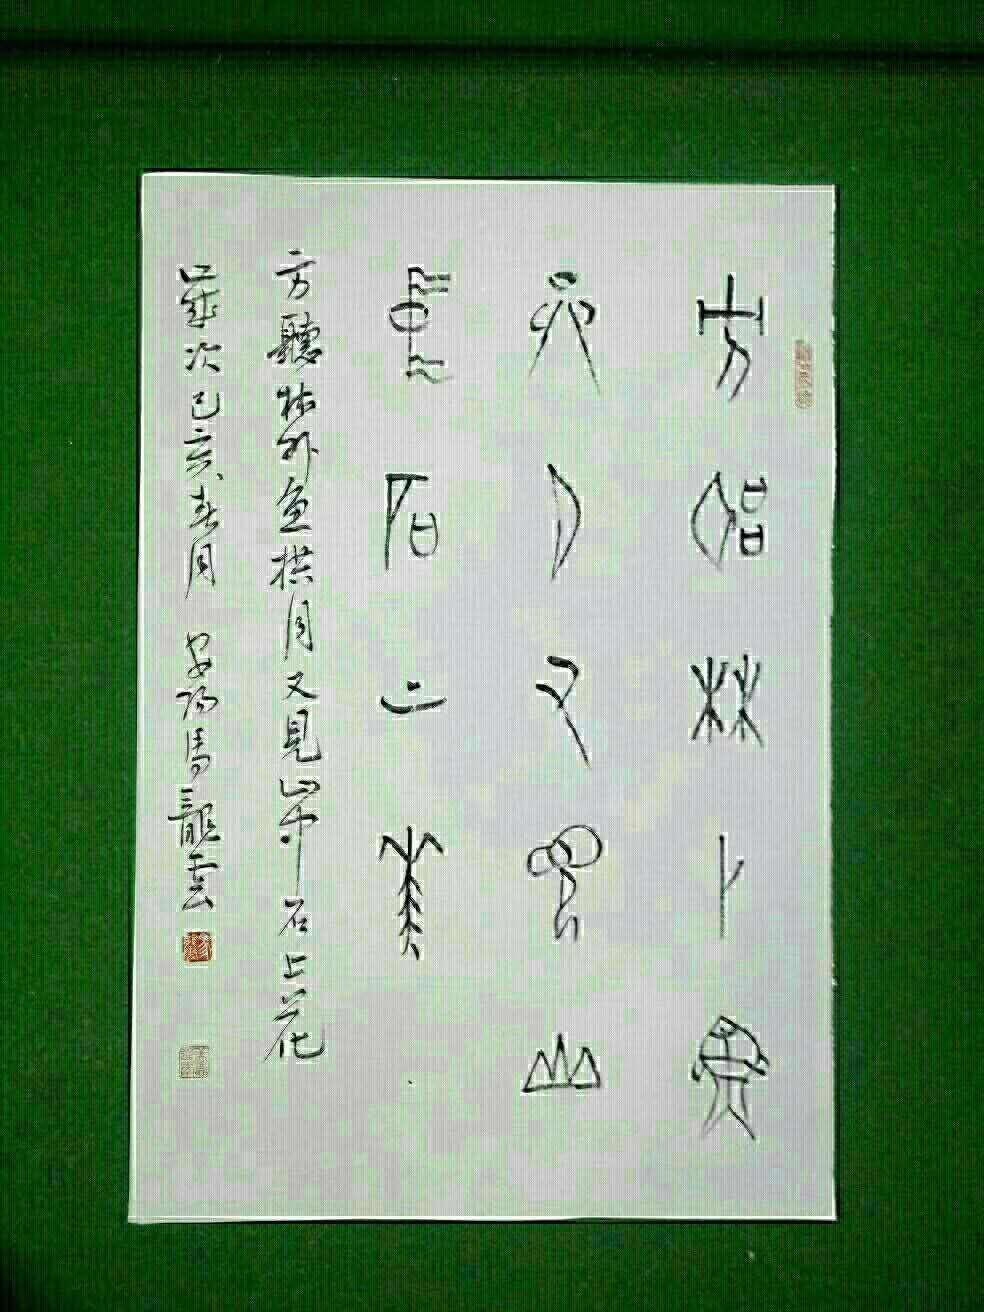 方聽林外魚
拱月又見山
中石上花
方聽林外魚拱月又見山中石上花
歲次己亥春月 安陽馬龍雲